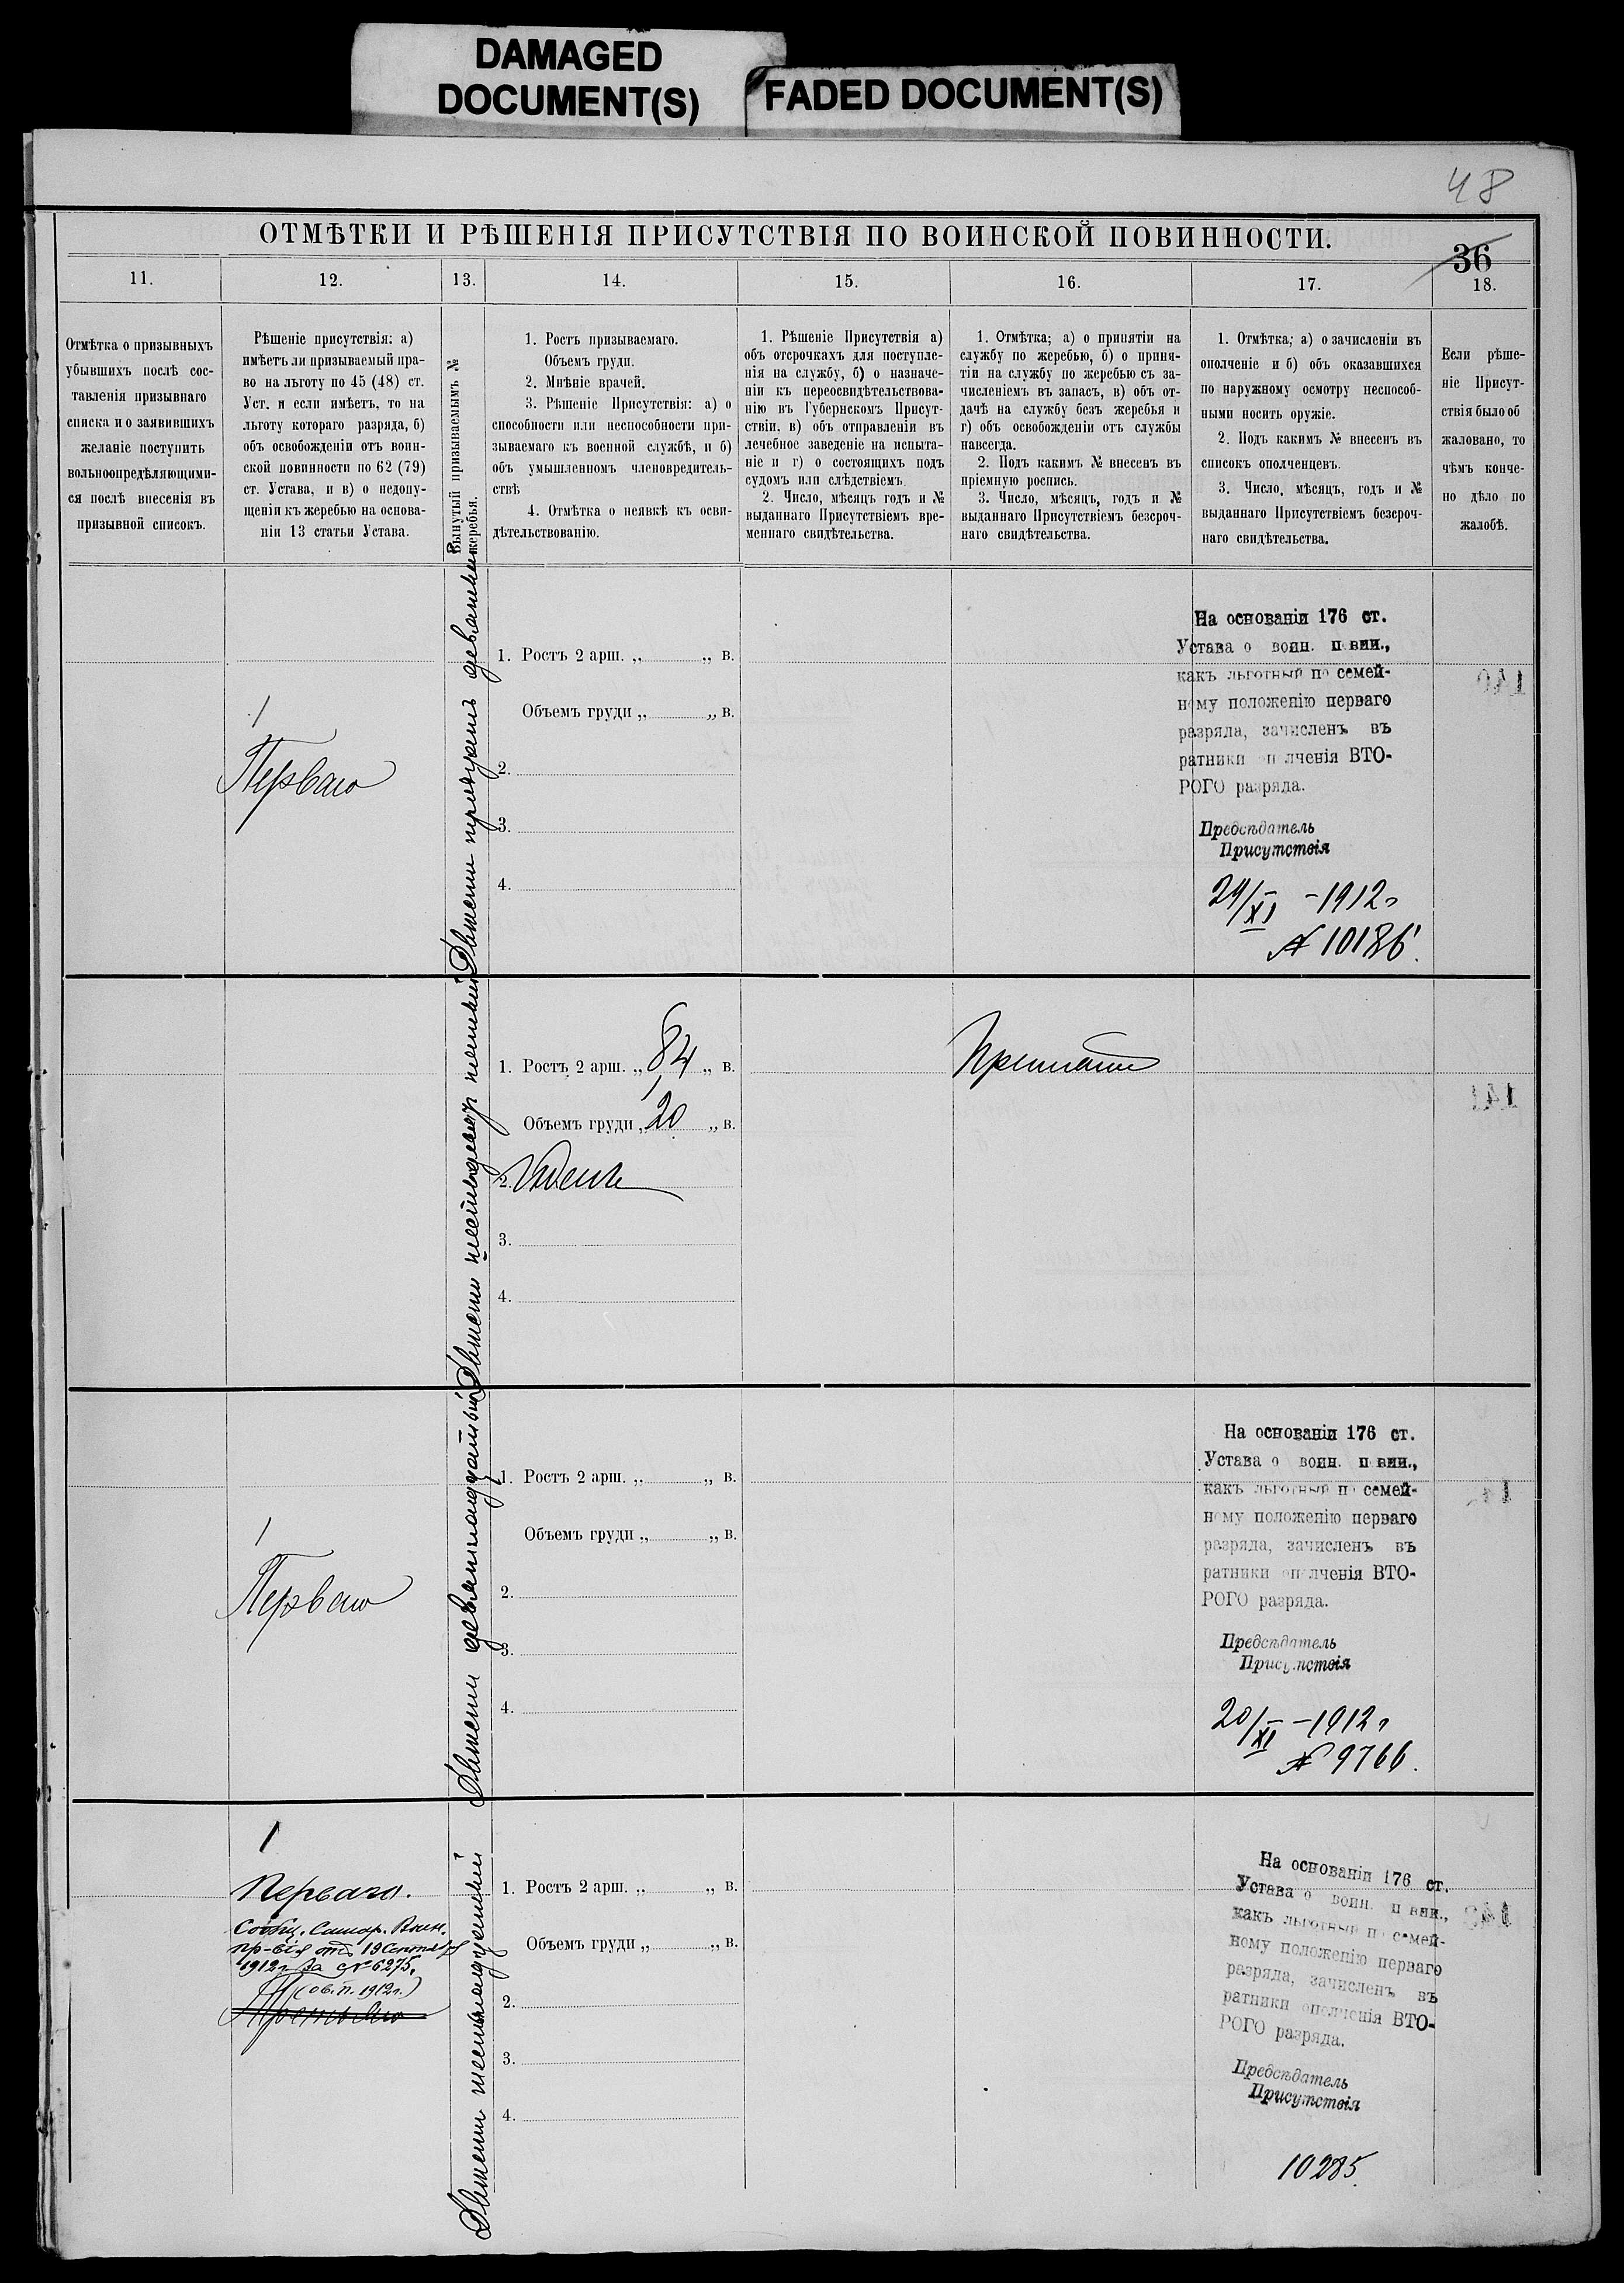 DAMAGED
DOCUMENT(S)
FADED DOCUMENT(S)
48
ОТМѢТКИ И РѢШЕНІЯ ПРИСУТСТВІЯ ПО ВОИНСКОЙ ПОВИННОСТИ.
36
11.
12.
13.
14.
15.
16.
17.
18.
Отмѣтка о призывныхъ
убывшихъ послѣ сос-
тавленія призывнаго
списка и о заявившихъ
желаніе поступить
вольноопредѣляющими-
ся послѣ внесенія въ
призывной списокъ.
Рѣшеніе присутствія: а)
имѣетъ ли призываемый пра-
во на льготу по 45 (48) ст.
Уст. и если имѣетъ, то на
льготу котораго разряда, б)
объ освобожденіи отъ воин-
ской повинности по 62 (79)
ст. Устава, и в) о недопу-
щеніи къ жеребью на основа-
ніи 13 статьи Устава.
Вынутый призываемымъ №
жеребья.
1. Ростъ призываемаго.
Объемъ груди.
2. Мнѣніе врачей.
3. Рѣшеніе Присутствія: а) о
способности или неспособности при-
зываемаго къ военной службѣ, и б)
объ умышленномъ членовредитель-
ствѣ
4. Отмѣтка о неявкѣ къ осви-
дѣтельствованію.
1. Рѣшеніе Присутствія а)
объ отсрочкахъ для поступле-
нія на службу, б) о назначе-
ніи къ переосвидѣтельствова-
нію въ Губернскомъ Присут-
ствіи, в) объ отправленіи въ
лечебное заведеніе на испыта-
ніе и г) о состоящихъ подъ
судомъ или слѣдствіемъ
2. Число, мѣсяцъ годъ и №
выданнаго Присутствіемъ вре-
меннаго свидѣтельства.
1. Отмѣтка; а) о принятіи на
службу по жеребью, б) о приня-
тіи на службу по жеребью съ за-
численіемъ въ запасъ, в) объ от-
дачѣ на службу безъ жеребья и
г) объ освобожденіи отъ службы
навсегда.
2. Подъ какимъ № внесенъ въ
пріемную роспись.
3. Число, мѣсяцъ, годъ и №
выданнаго Присутствіемъ безсроч-
наго свидѣтельства.
1. Отмѣтка; а) о зачисленіи въ
ополченіе и б) объ оказавшихся
по наружному осмотру неспособ-
ными носить оружіе.
2. Подъ какимъ № внесенъ въ
списокъ ополченцевъ.
3. Число, мѣсяцъ, годъ и №
выданнаго Присутствіемъ безсроч-
наго свидѣтельства.
Если рѣше-
ніе Присут-
ствія было об
жаловано, то
чѣмъ конче-
но дѣло по
жалобѣ.
1
Перваго
Двѣсти тридцать девятый
1. Ростъ 2 арш. „ „ в.
Объемъ груди „ „ в.
2.
3.
4.
На основаніи 176 ст.
Устава о воин. повин.,
какъ льготный по семей-
ному положенію перваго
разряда, зачисленъ въ
ратники ополченія ВТО-
РОГО разряда.
Предсѣдатель
Присутствія
24/XI -1912г
№ 10186.
140
Двѣсти шестьдесят
1. Ростъ 2 арш. „ 8,4 „ в.
Объемъ груди „ 20 „ в.
2. Годенъ
3.
4.
Принятъ
141
1
Перваго
Двѣсти девятнадцатый
1. Ростъ 2 арш. „ „ в.
Объемъ груди „ „ в.
2.
3.
4.
На основаніи 176 ст.
Устава о воин. повин.,
какъ льготный по семей-
ному положенію перваго
разряда, зачисленъ въ
ратники ополченія ВТО-
РОГО разряда.
Предсѣдатель
Присутствія
20/XI -1912г
№ 9766.
1
Перваго.
Сообщ. Самар. Воин.
пр-вія отъ 19 Сентября
1912г за № 6275.
Третьяго
Двѣсти шестнадцатый
1. Ростъ 2 арш. „ „ в.
Объемъ груди „ „ в.
2.
3.
4.
На основаніи 176 ст.
Устава о воин. повин.,
какъ льготный по семей-
ному положенію перваго
разряда, зачисленъ въ
ратники ополченія ВТО-
РОГО разряда.
Предсѣдатель
Присутствія
10285